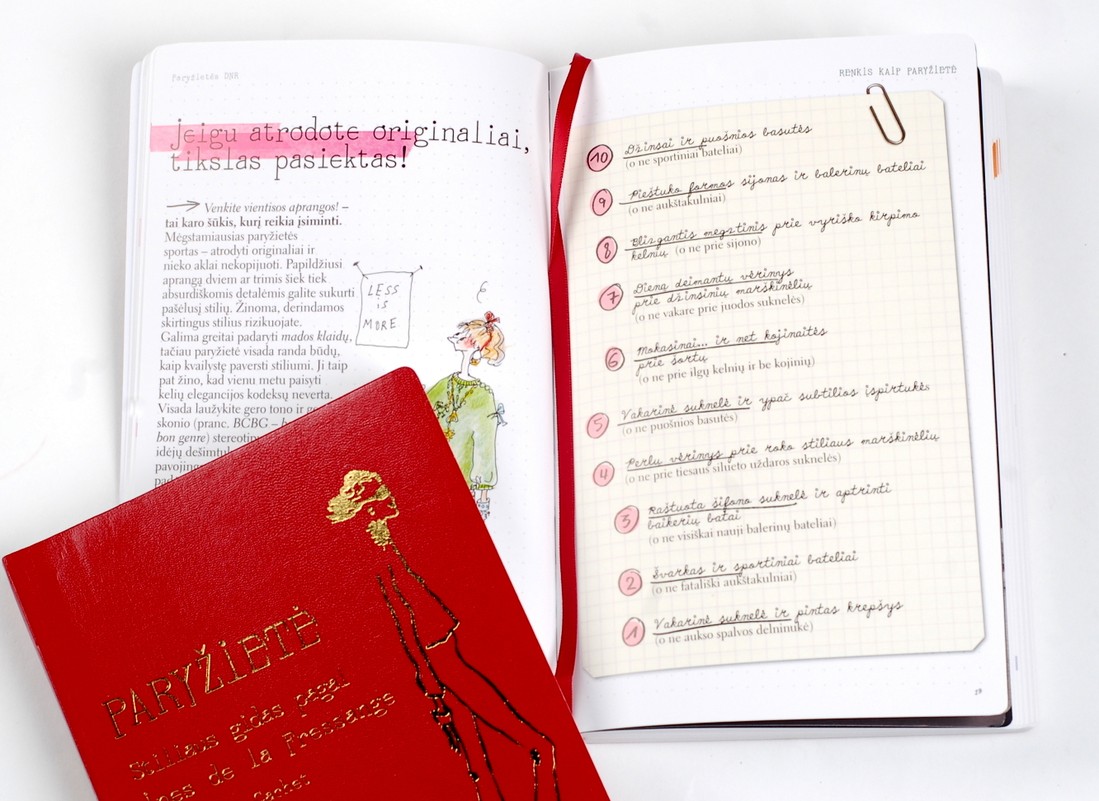 Paryžietės DNR
Jeigu atrodote originaliai,
tikslas pasiektas!
Venkite vientisos aprangos! –
tai karo šūkis, kurį reikia įsiminti.
Mėgstamiausias paryžietės
sportas – atrodyti originaliai ir
nieko aklai nekopijuoti. Papildžiusi
aprangą dviem ar trimis šiek tiek
absurdiškomis detalėmis galite sukurti
pašėlusį stilių. Žinoma, derindamos
skirtingus stilius rizikuojate.
Galima greitai padaryti mados klaidų,
tačiau paryžietė visada randa būdų,
kaip kvailystę paversti stiliumi. Ji taip
pat žino, kad vienu metu paisyti
kelių elegancijos kodeksų neverta.
Visada laužykite gero tono ir
skonio (pranc. BCBG –
bon genre)
idėjų
LESS
is
MORE
RENKIS KAIP PARYŽIETĖ
10 Džinsai ir puošnios basutės
(o ne sportiniai bateliai)
9 Pieštuko formos sijonas ir balerinų bateliai
(o ne aukštakulniai)
8 Blizgantis megztinis prie vyriško kirpimo
kelnių (o ne prie sijono)
7 Dieną deimantų vėrinys
prie džinsinių marškinėlių
(o ne vakare prie juodos suknelės)
6 Mokasinai... ir net kojinaitės
prie šortų
(o ne prie ilgų kelnių ir be kojinių)
5 Vakarinė suknelė ir ypač subtilios ispirtukės
(o ne puošnios basutės)
4 Perlų vėrinys prie roko stiliaus marškinėlių
(o ne prie tiesaus silueto uždaros suknelės)
3 Raštuota šifono suknelė ir aptrinti
baikerių batai
(o ne visiškai nauji balerinų bateliai)
2 Švarkas ir sportiniai bateliai
(o ne fatališki aukštakulniai)
1 Vakarinė suknelė ir pintas krepšys
(o ne aukso spalvos delninukė)
PARYŽIETĖ
Stiliaus gidas pagal
de la Fressange